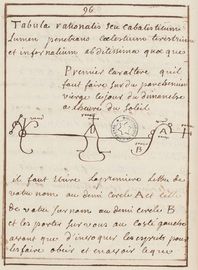 96
Tabula rationalis seu cabalisticum
Lumen penetrans cœlestium terestrium
et infernalium abditissima quæque
Premier caractere quil
faut faire sur du parchemin
vierge le jour du dimanche
a l'heure du Soleil
A
B
il faut Ecrire la premiere lettre de
votre nom au demi cercle A et celle
de votre surnom au demi cercle B
et les porter sur vous au costé gauche
avant que d'invoquer les esprits pour
les faire obeir et